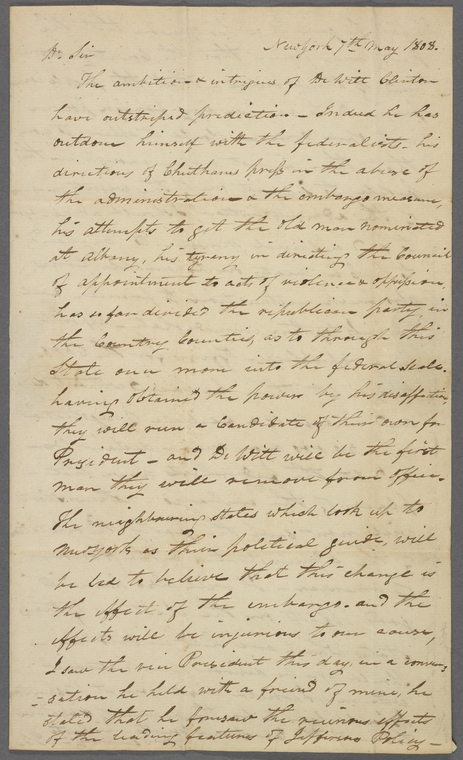 New York 7th May 1808.
Dr Sir
The ambition & intrigues of De Witt Clinton
have outstriped prediction - Indeed he has
outdone himself with the federalists - his
directions of Chethams press in the abuse of
the administration & the embargo measure,
his attempts to get the old man nominated
at Albany, his tyrany in directing the Council
of appointment to acts of violence & oppression,
has so far divided the republican party, in
the Country Counties, as to through this
State once more into the federal scale.
having obtained the powers by his disaffection,
they will run a Candidate of their own for
President - and De Witt will be the first
man they will remove from office.
The neighbouring States which look up to
New York as their political guide, will
be led to believe that this change is
the effect of the embargo. and the
effects will be injurious to our cause,
I saw the vice President this day, in a conver
=sation he held with a friend of mine, he
stated that he foresaw the ruinous effects
of the leading features of Jeffersons Policy -